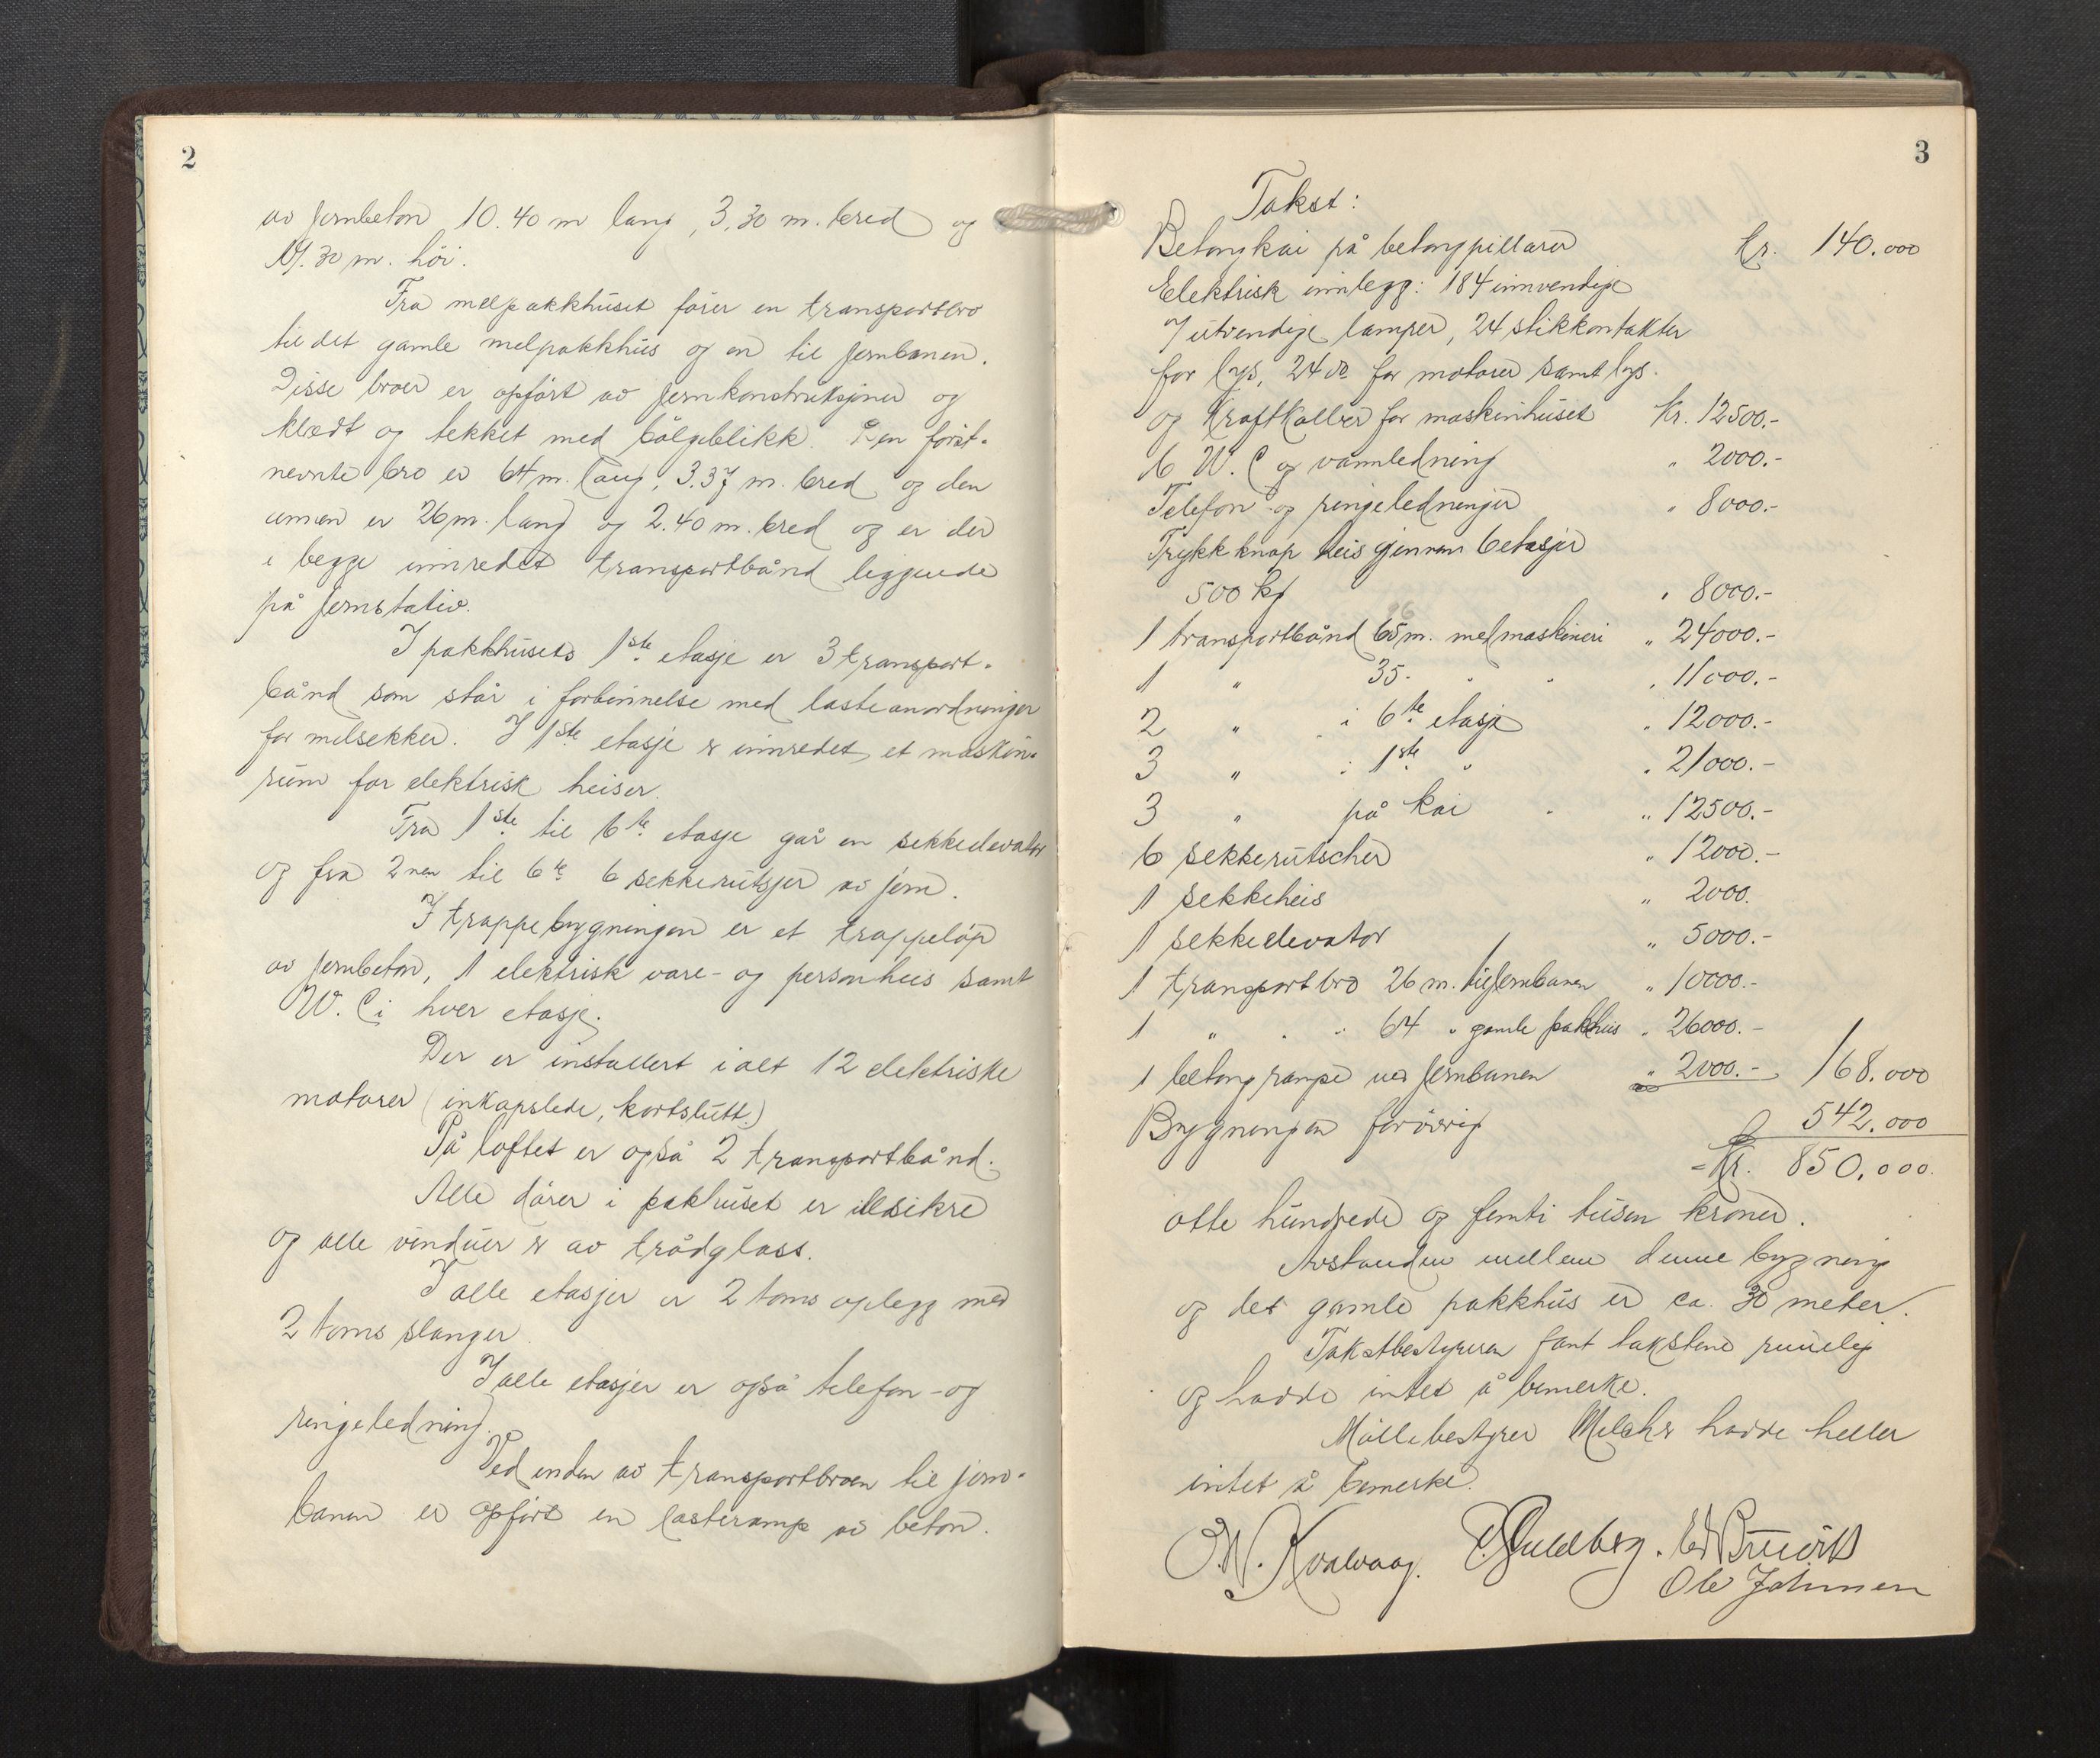 2
av jernbeton 10.40 m lang, 3,30 m. bred og
19.30 m. høi.
Fra melpakkhuset fører en transportbro
til det gamle melpakkhus og en til jernbanen.
Disse broer er opført av jernkonstruksjoner og
klædt og tekket med bølgeblikk. Den først-
nevnte bro er 64 m. lang, 3.37 m. bred og den
annen er 26 m. lang og 2.40 m. bred og er der
i begge innredet transportbånd liggende
på jernstativ.
I pakkhusets 1ste etasje er 3 transport-
bånd som står i forbinnelse med lasteanordninger
for melsekker. I 1ste etasje er innredet et maskin-
rum for elektrisk heiser.
Fra 1ste til 6te etasje går en sekkeelevator
og fra 2nen til 6te 6 sekkerutsjer av jern.
I trappebygningen er et trappeløp
av jernbeton, 1 elektrisk vare- og personheis samt
W.C i hver etasje.
Der er installert ialt 12 elektriske
motorer (inkapslede, kortslutt.)
På loftet er også 2 transportbånd.
Alle dører i pakhuset er ildsikre
og alle vinduer er av trådglass.
I alle etasjer er 2 toms oplegg med
2 toms slanger.
I alle etasjer er også telefon- og
ringeledning.
Ved enden av transportbroen til jern-
banen er opført en lasterampe av beton.
3
Takst:
Betongkai på betongpillarer kr. 140.000
Elektrisk innlegg: 184 innvendige
7 utvendige lamper, 24 stikkontakter
for lys, 24 do for motorer samt lys-
og kraftkabler for maskinhuset kr. 12500.-
6 W.C og vannledning " 2000.-
Telefon- og ringeledninger " 8000.-
Trykk knap heis gjennem 6 etasjer
500 kg " 8000.-
1 transportbånd 65 m. med maskineri " 24000.-
1 " 35- " " " 11000.-
2 " i 6te etasje " 12000.-
3 " i 1ste " " 21000.-
3 " på kai " " 12500.-
6 sekkerutscher " 12000.-
1 sekkeheis " 2000.
1 sekkeelevator " 5000.-
1 transportbro 26 m. til jernbanen " 10000.-
1 " " " 64 " gamle pakkhus " 26000.-
1 betongrampe ved jernbanen " 2000.- 168.000
Bygningen forøvrig 542.000
= Kr. 850.000.
otte hundrede og femti tusen kroner.
Avstanden mellem denne bygning
og det gamle pakkhus er ca. 30 meter.
Takstbestyreren fant takstene rimelig
og hadde intet å bemerke.
Møllebestyrer hadde heller
intet å bemerke.
O.W. Kvalvaag. Guldberg.
Ole Johnsen